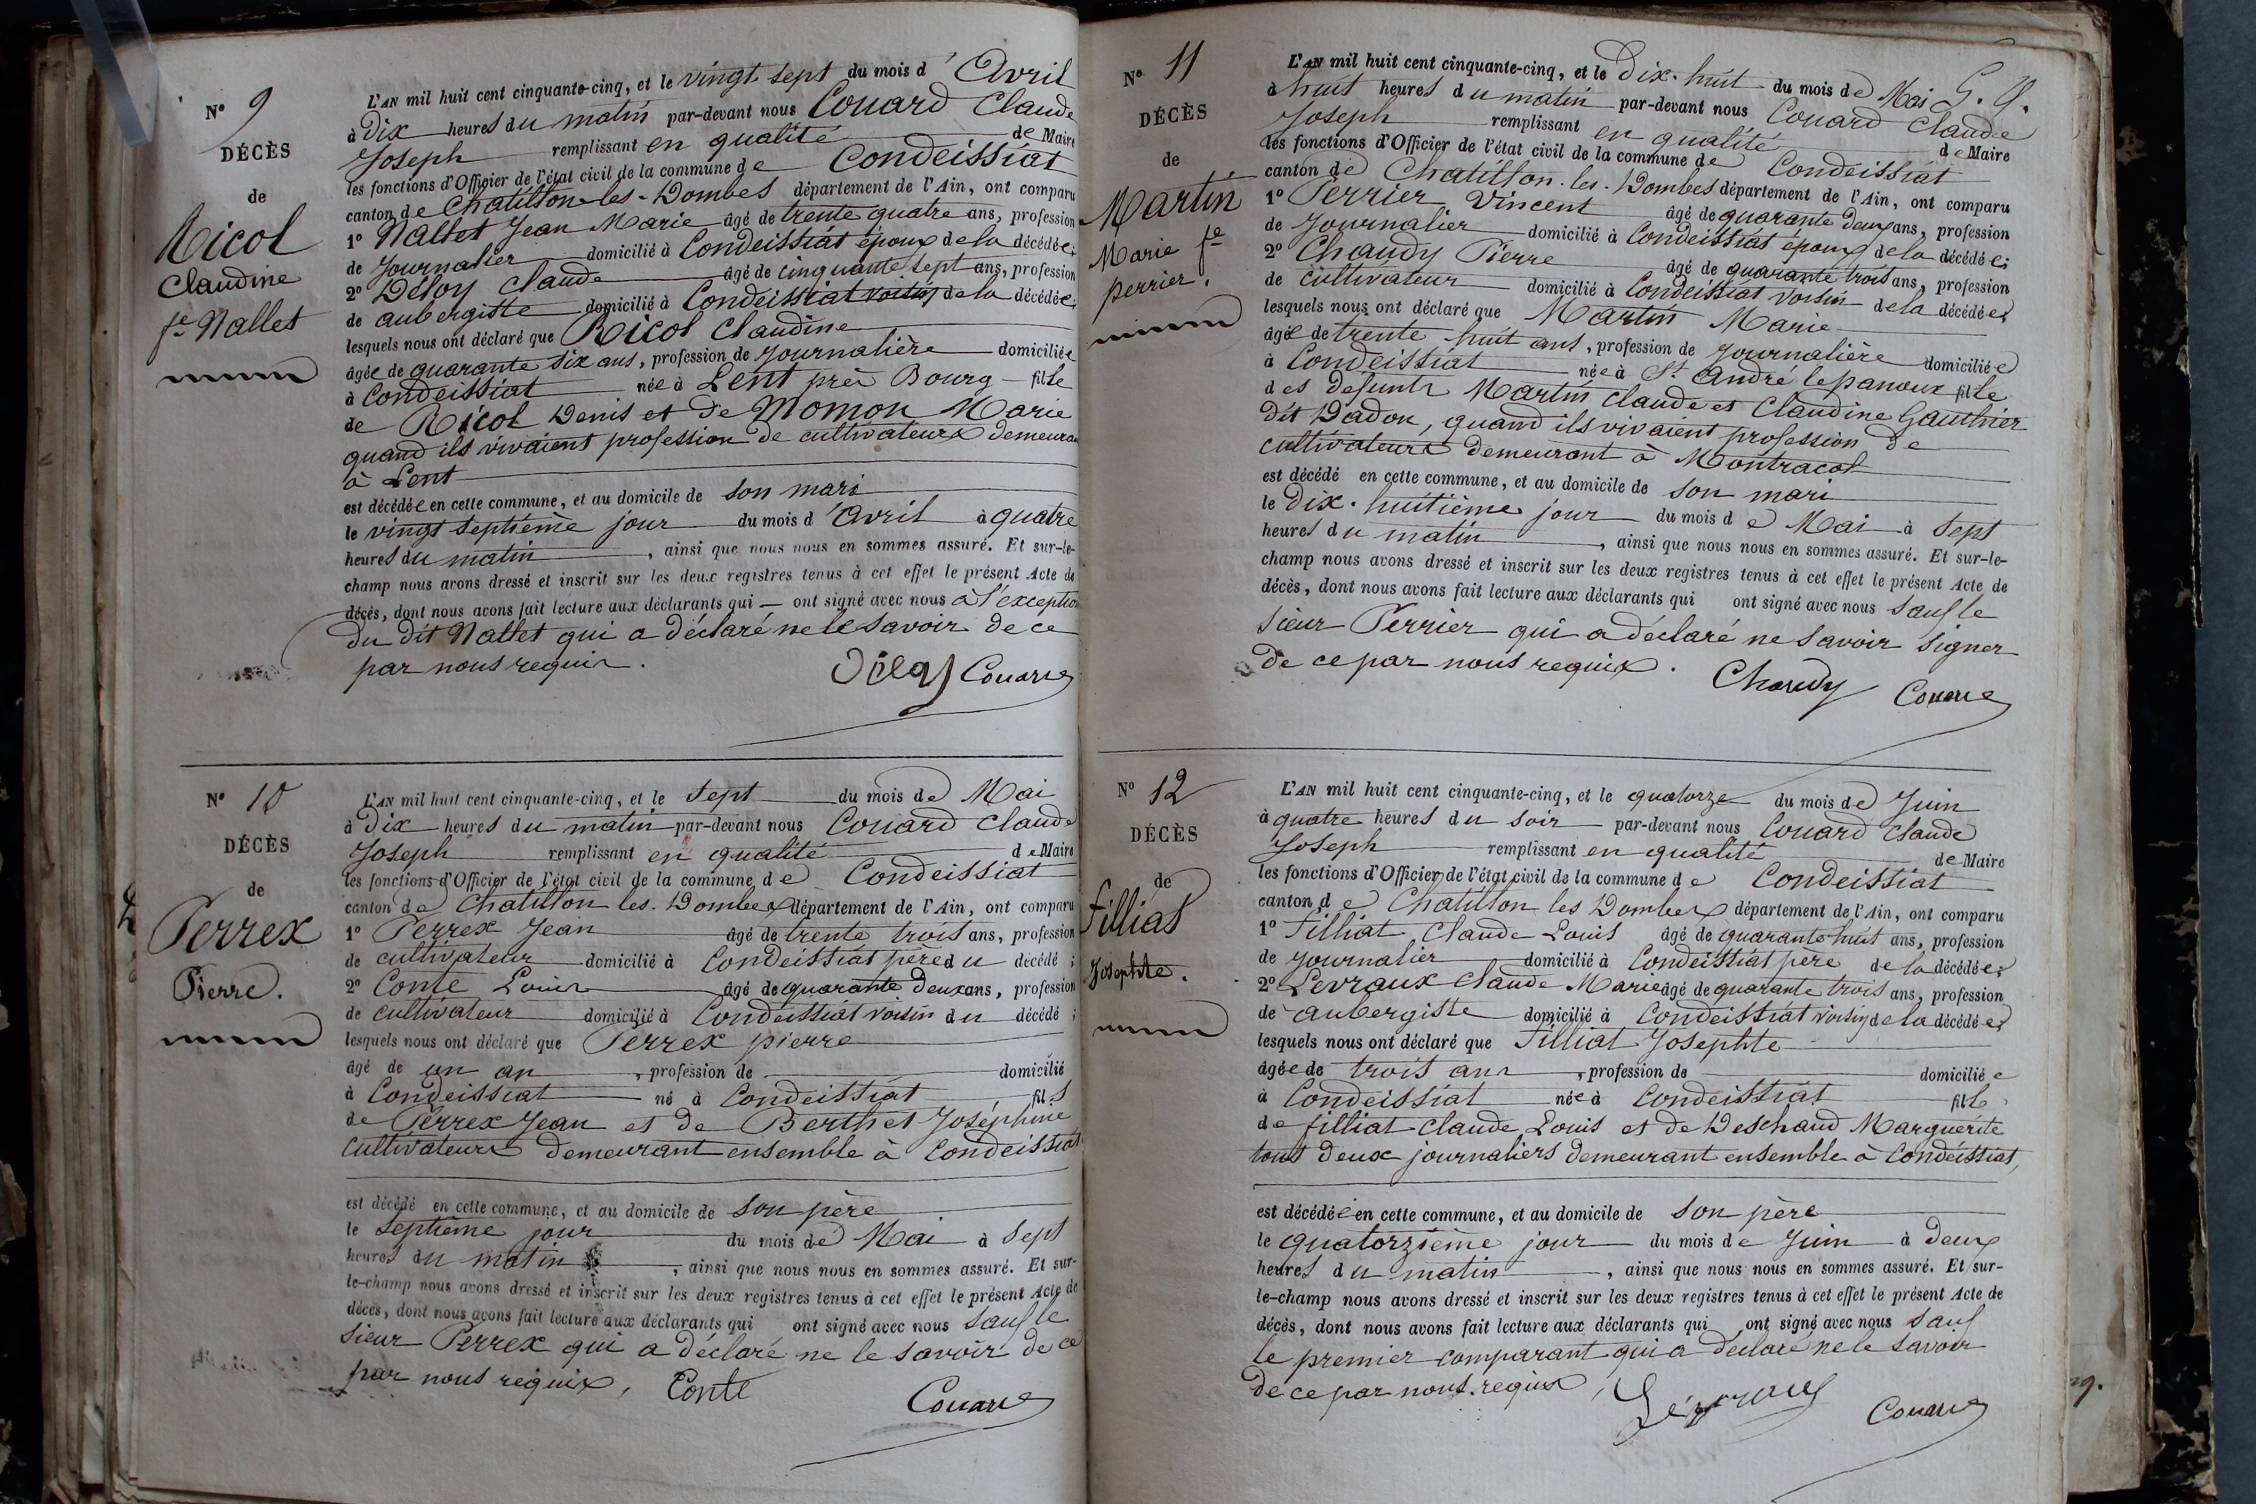 N° 9
DÉCÈS
de
Ricol
Claudine
fe Nallet
L'AN mil huit cent cinquante-cinq, et le vingt sept du mois d'Avril
à Dix heures du matin par-devant nous Couard Claude
Joseph remplissant en qualité de Maire
les fonctions d'Officier de l'état civil de la commune de Condeissiat
canton de Chatillon-les-Dombes département de l'Ain, ont comparu
1° Nallet Jean Marie âgé de trente quatre ans, profession
de Journalier domicilié à Condeissiat époux de la décédée;
2° Déloy Claude âgé de cinquante sept ans, profession
de aubergiste domicilié à Condeissiat voisin de la décédée;
lesquels nous ont déclaré que Ricol Claudine
âgée de quarante six ans, profession de Journalière domiciliée
à Condeissiat née à Lent près Bourg fille
de Ricol Denis et de Momon Marie
quand ils vivaient profession de cultivateurs demeurant
à Lent
est décédée en cette commune, et au domicile de son mari
le vingt septième jour du mois d'Avril à quatre
heures du matin, ainsi que nous nous en sommes assuré. Et sur-le-
champ nous avons dressé et inscrit sur les deux registres tenus à cet effet le présent Acte de
décès, dont nous avons fait lecture aux déclarants qui ont signé avec nous à l'exception
du dit Nallet qui a déclaré ne le savoir de ce
par nous requis.
Couard
N° 10
DÉCÈS
de
Perrex
Pierre.
L'AN mil huit cent cinquante-cinq, et le sept du mois de Mai
à Dix heures du matin par-devant nous Couard Claude
Joseph remplissant en qualité de Maire
les fonctions d'Officier de l'état civil de la commune de Condeissiat
canton de Chatillon les-Dombes département de l'Ain, ont comparu
1° Perrex Jean âgé de trente trois ans, profession
de cultivateur domicilié à Condeissiat père du décédé;
2° Conte Louis âgé de quarante deux ans, profession
de cultivateur domicilié à Condeissiat voisin du décédé;
lesquels nous ont déclaré que Perrex pierre
âgé de un an, profession de domicilié
à Condeissiat né à Condeissiat fils
de Perrex Jean et de Berthet Joséphine
cultivateurs demeurant ensemble à Condeissiat
est décédé en cette commune, et au domicile de son père
le septième jour du mois de Mai à sept
heures du matin, ainsi que nous nous en sommes assuré. Et sur-
le-champ nous avons dressé et inscrit sur les deux registres tenus à cet effet le présent Acte de
décès, dont nous avons fait lecture aux déclarants qui ont signé avec nous sauf le
sieur Perrex qui a déclaré ne le savoir de ce
par nous requix, Conte
Couard
N° 11
DÉCÈS
de
Martin
Marie fe
perrier.
L'AN mil huit cent cinquante-cinq, et le Dix-huit du mois de Mai
à huit heures du matin par-devant nous Couard Claude
Joseph remplissant en qualité de Maire
les fonctions d'Officier de l'état civil de la commune de Condeissiat
canton de Chatillon-les-Dombes département de l'Ain, ont comparu
1° Perrier Vincent âgé de quarante deux ans, profession
de Journalier domicilié à Condeissiat époux de la décédée;
2° Chaudy Pierre âgé de quarante trois ans, profession
de cultivateur domicilié à Condeissiat voisin de la décédée;
lesquels nous ont déclaré que Martin Marie
âgée de trente huit ans, profession de Journalière domiciliée
à Condeissiat née à St. André lepanoux fille
des défunts Martin Claude et Claudine Gauthier
dit Dadon, quand ils vivaient profession de
cultivateurs demeurant à Montracol
est décédé en cette commune, et au domicile de son mari
le dix-huitième jour du mois de Mai à sept
heures du matin, ainsi que nous nous en sommes assuré. Et sur-le-
champ nous avons dressé et inscrit sur les deux registres tenus à cet effet le présent Acte de
décès, dont nous avons fait lecture aux déclarants qui ont signé avec nous sauf le
sieur Perrier qui a déclaré ne savoir signer
de ce par nous requix. Chaudy Couard
N° 12
DÉCÈS
de
Filliat
Josephte.
L'AN mil huit cent cinquante-cinq, et le quatorze du mois de Juin
à quatre heures du soir par-devant nous Couard Claude
Joseph remplissant en qualité de Maire
les fonctions d'Officier de l'état civil de la commune de Condeissiat
canton de Chatillon les Dombes département de l'Ain, ont comparu
1° Filliat Claude Louis âgé de quarante huit ans, profession
de journalier domicilié à Condeissiat père de la décédée;
2° Levraux Claude Marie âgé de quarante trois ans, profession
de aubergiste domicilié à Condeissiat voisin de la décédée;
lesquels nous ont déclaré que Filliat Josephte
âgée de trois ans, profession de domiciliée
à Condeissiat née à Condeissiat fille
de filliat Claude Louis et de Deschaud Marguerite
tous deux journaliers demeurant ensemble à Condeissiat,
est décédée en cette commune, et au domicile de son père
le quatorzième jour du mois de Juin à deux
heures du matin, ainsi que nous nous en sommes assuré. Et sur-
le-champ nous avons dressé et inscrit sur les deux registres tenus à cet effet le présent Acte de
décès, dont nous avons fait lecture aux déclarants qui ont signé avec nous sauf
le premier comparant qui a déclaré ne le savoir
de ce par nous requix,
Couard